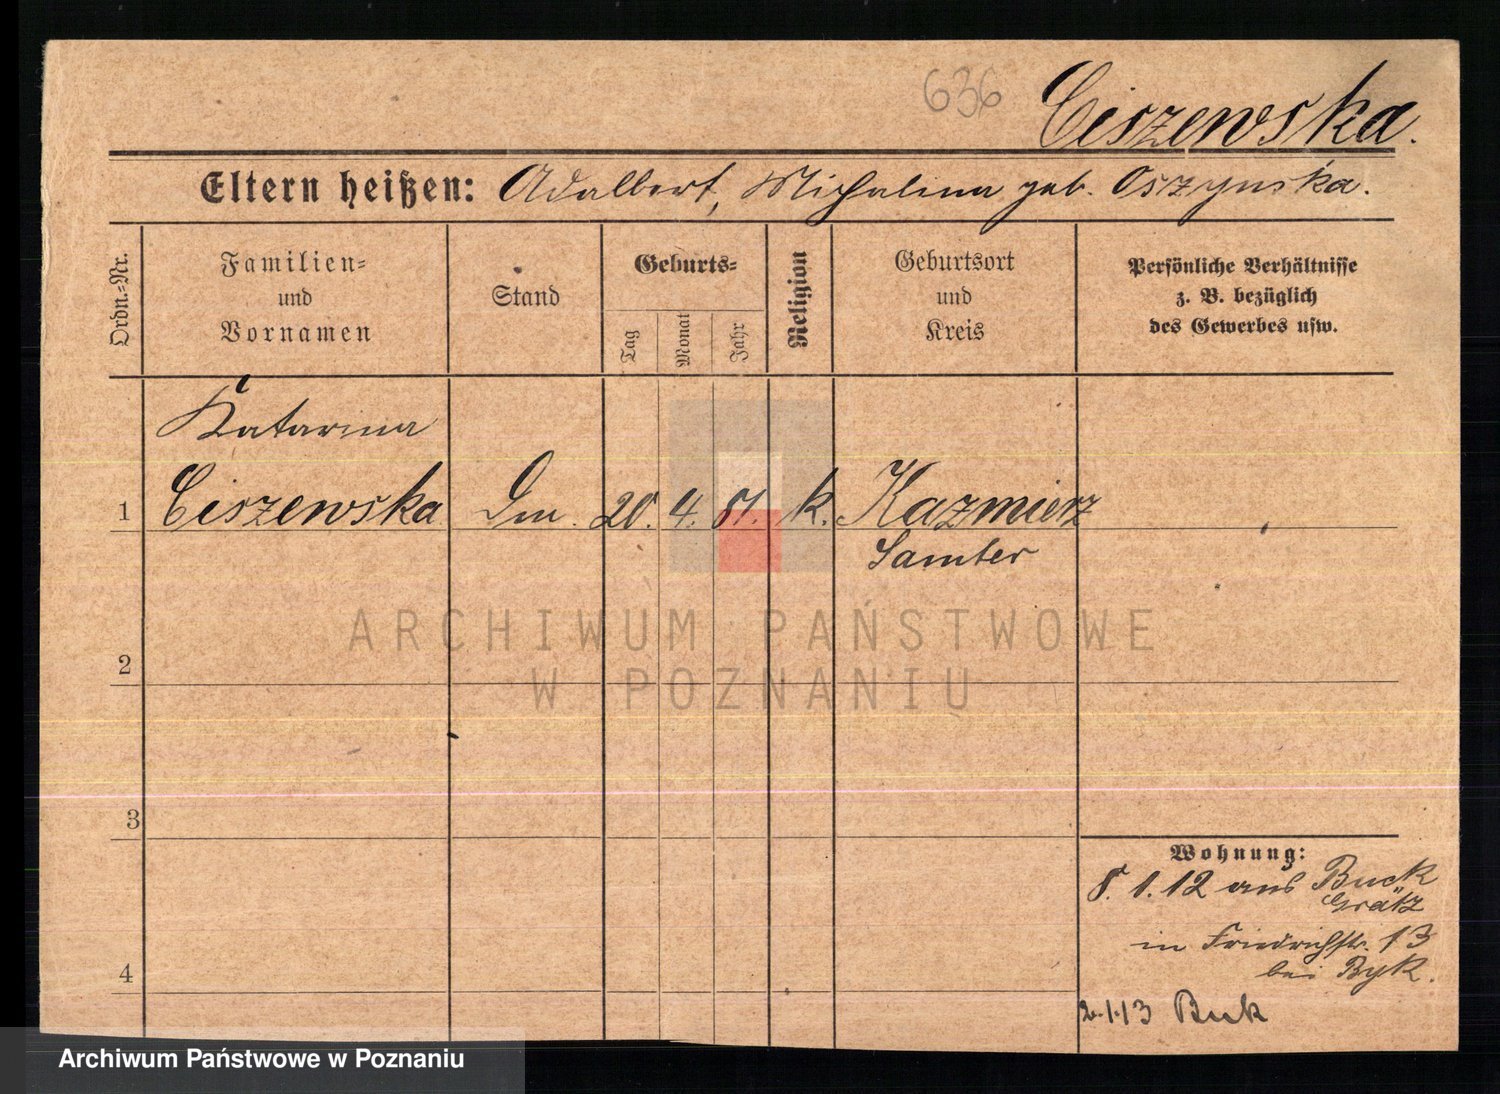 636
Ciszewska.
Eltern heißen: Adalbert, Michalina geb. Oszynska.
Ordn.=Nr.
Familien=
und
Vornamen
Stand
Geburts=
Tag
Monat
Jahr
Religion
Geburtsort
und
Kreis
Persönliche Verhältnisse
z. B. bezüglich
des Gewerbes usw.
Katarina
1 Ciszewska 20. 4. k. Kazmierz
Samter
ARCHIWUM PAŃSTWOWE
W POZNANIU
2
3
4
Wohnung:
8. 1. 12 aus Buck
Grätz
in Friedrichstr. 13
bei Byk.
2.1.13 Buk
Archiwum Państwowe w Poznaniu